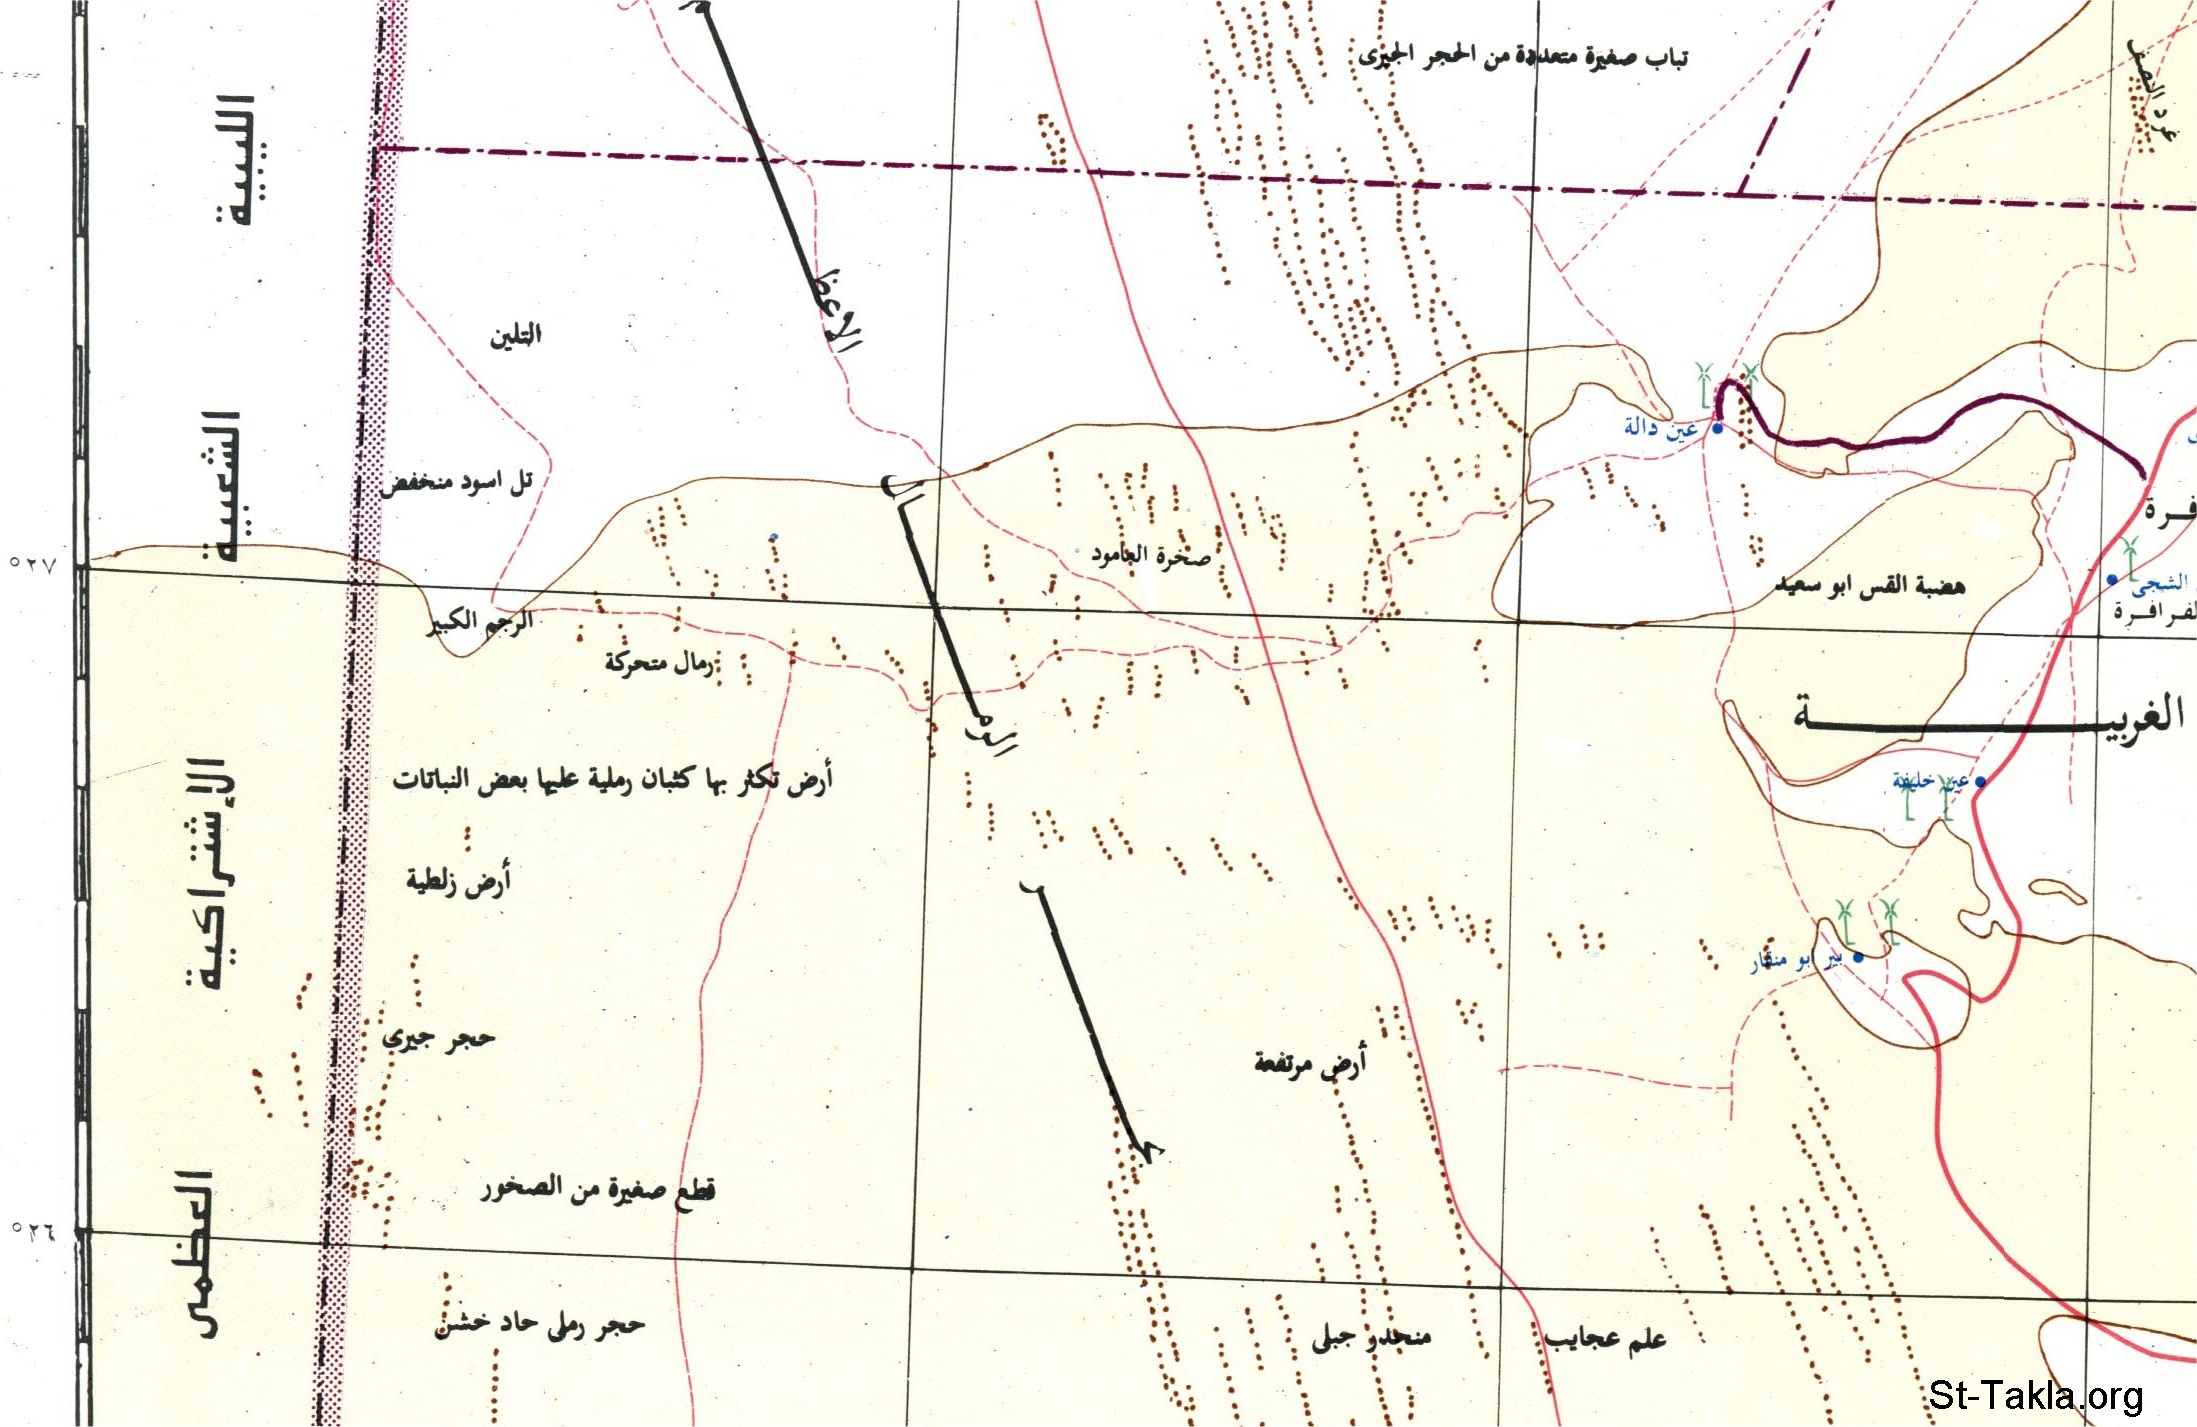 تباب صغيرة متعددة من الحجر الجيرى
غرد
الليبية
التلين
الشعبية
تل اسود منخفض
عين دالة
صخرة العامود
هضبة القس ابو سعيد
°٢٧
الرجم الكبير
رمال متحركة
الغربيـــة
أرض تكثر بها كثبان رملية عليها بعض النباتات
عين خليفة
الإشتراكية
أرض زلطية
بير ابو منقار
بحر
الرمال
الأعظم
حجر جيرى
أرض مرتفعة
قطع صغيرة من الصخور
العظمى
°٢٦
حجر رملى حاد خشن
منحدر جبلى
علم عجايب
St-Takla.org